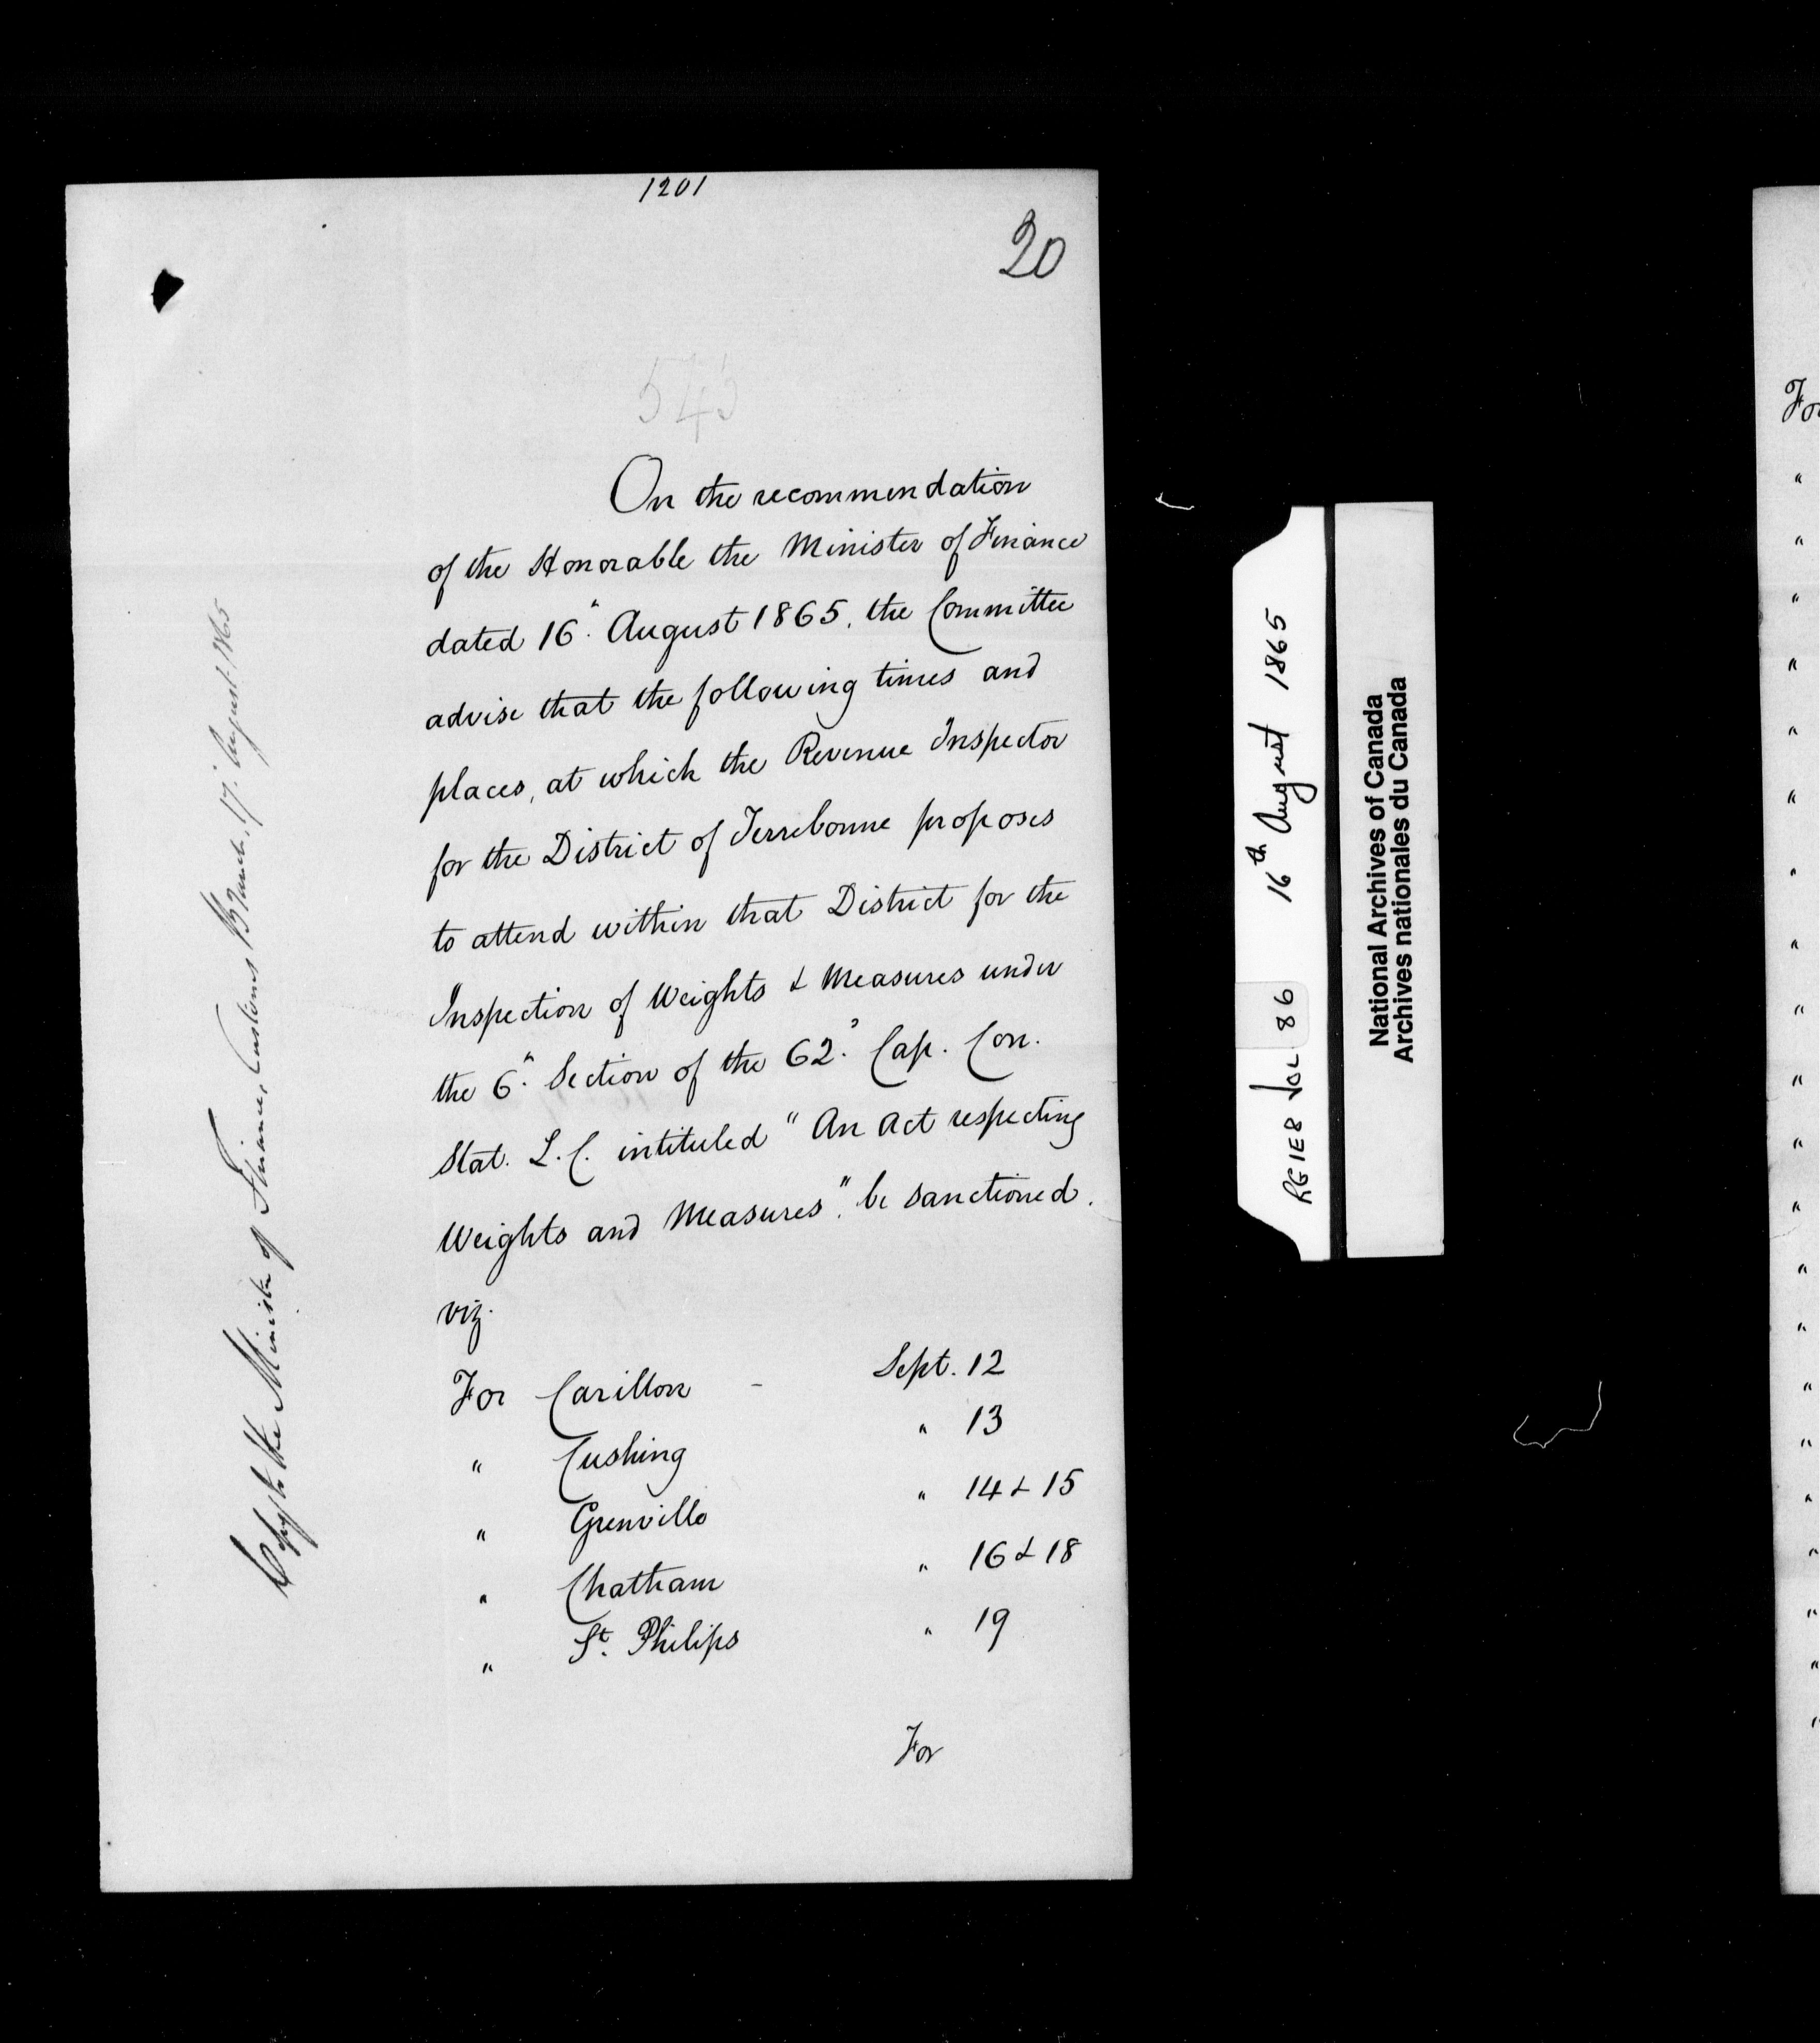 1201
20
543
On the recommendation
of the Honorable the Minister of Finance
dated 16" August 1865, the Committee
advise that the following times and
places, at which the Revenue Inspector
for the District of Terrebonne proposes
to attend within that District for the
Inspection of Weights & Measures under
the 6" Section of the 62" Cap. Con.
Stat. L.C. intituled "An Act respecting
Weights and Measures". be sanctioned.
viz.
For Carillon - Sept. 12
" Cushing " 13
" Grenville " 14 & 15
" Chatham " 16 & 18
" St. Philips " 19
For
Copy to the Minister of Finance, Customs Branch, 17" August 1865
RG1E8 VOL 86 16th August 1865
National Archives of Canada
Archives nationales du Canada
For